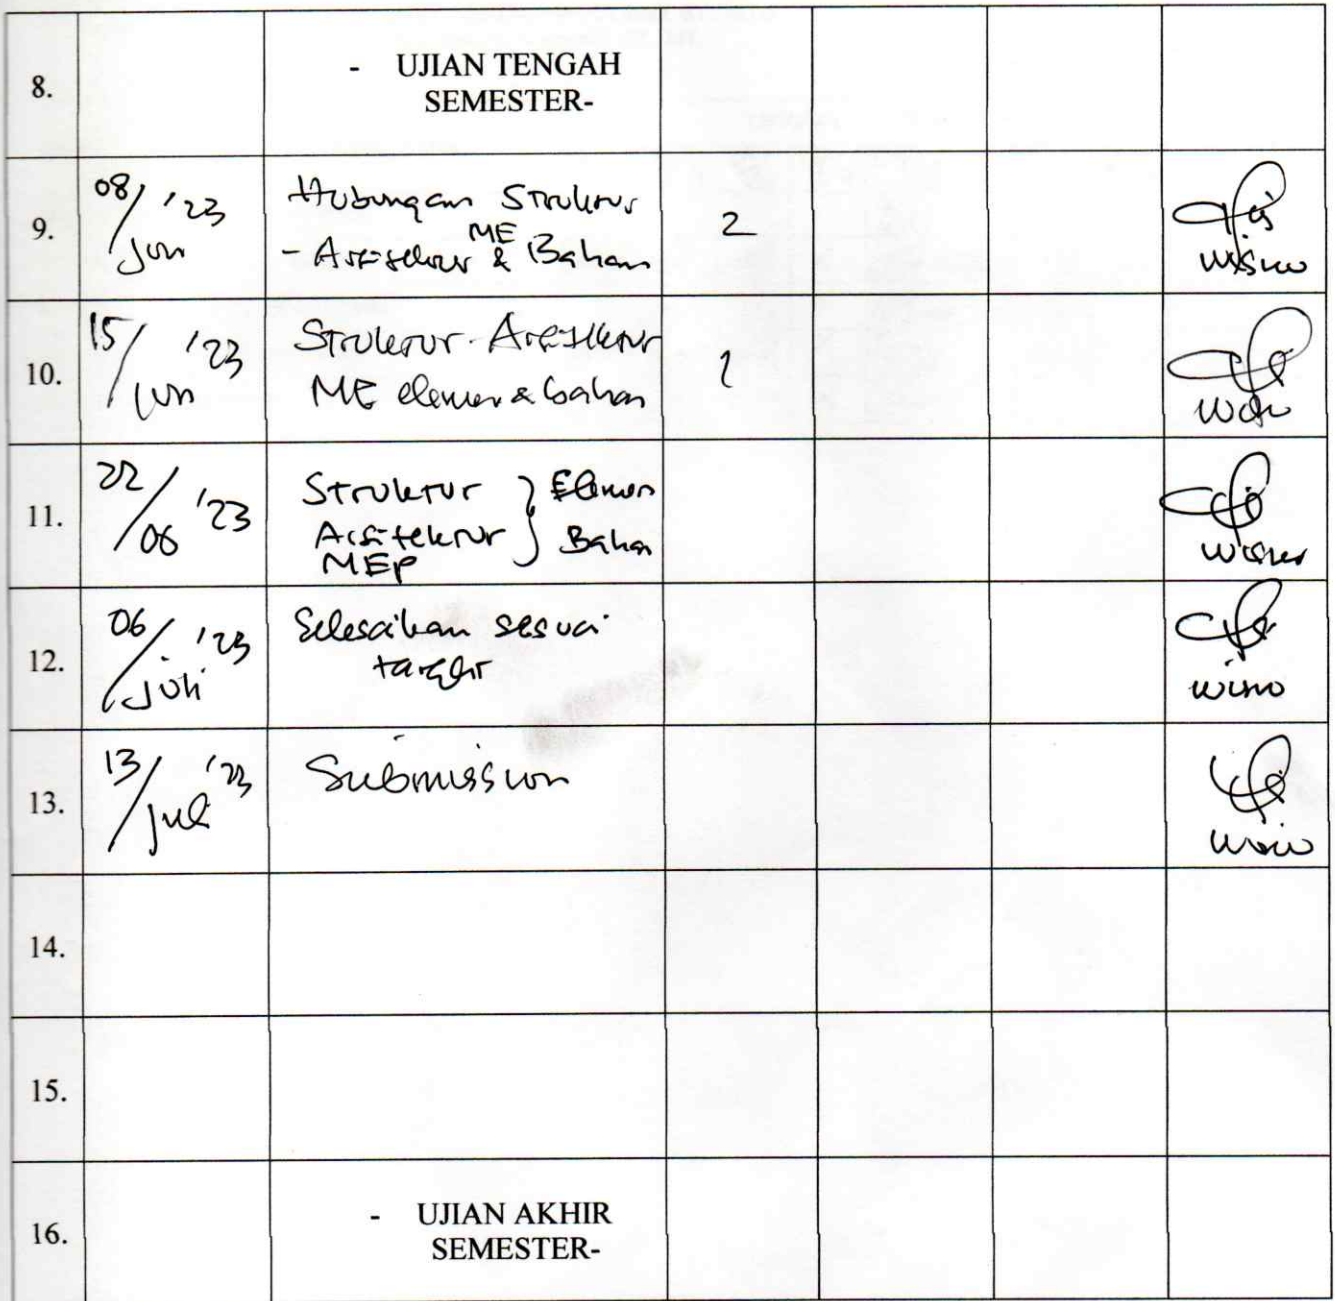 8.
- UJIAN TENGAH
SEMESTER-
9.
08/Jun '23
Hubungan Struktur
ME
- Arsitektur & Bahan
2
Wisnu
10.
15/Jun '23
Struktur - Arsitektur
ME elemen & bahan
1
11.
22/06 '23
Struktur } Elemen
Arsitektur } Bahan
MEP
Wisnu
12.
06/Juli '23
Selesaikan sesuai
target
Wisnu
13.
13/Jul '23
Submission
14.
15.
16.
- UJIAN AKHIR
SEMESTER-